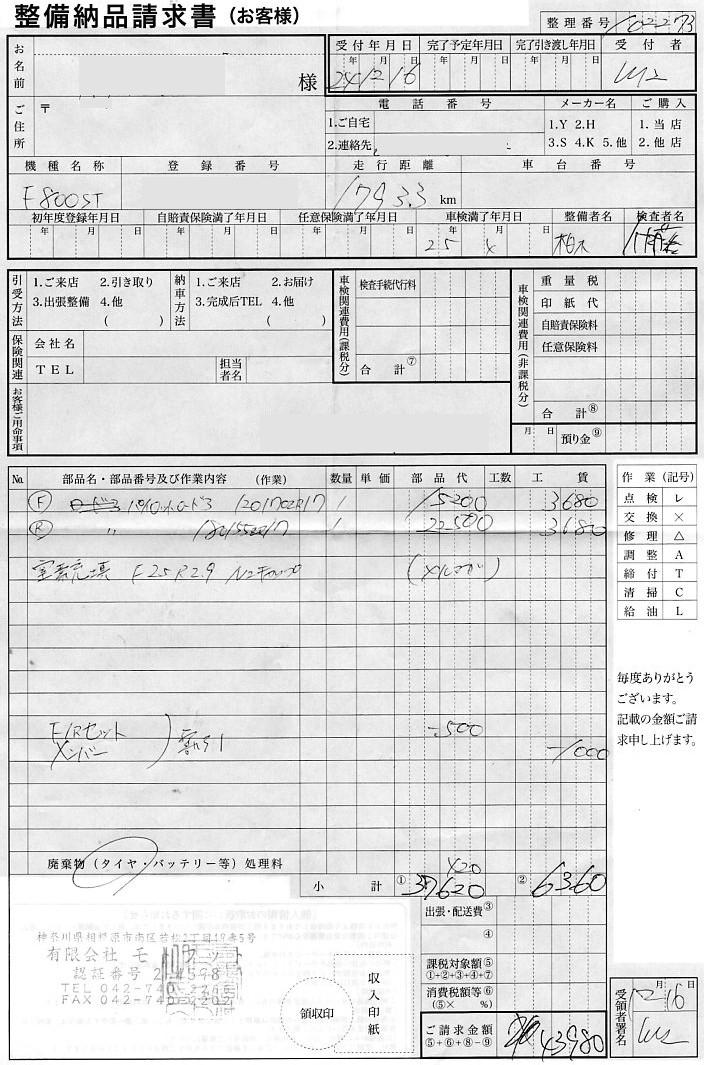 整備納品請求書(お客様)
整理番号
お名前 様
受付年月日 完了予定年月日 完了引き渡し年月日 受付者
年 月 日 年 月 日 年 月 日
24 12 16
ご住所 〒
電話番号 メーカー名 ご購入
1.ご自宅 1.Y 2.H 1.当店
2.連絡先 3.S 4.K 5.他 2.他店
機種名称 登録番号 走行距離 車台番号
F800ST 17933 km
初年度登録年月日 自賠責保険満了年月日 任意保険満了年月日 車検満了年月日 整備者名 検査者名
年 月 日 年 月 日 年 月 日 年 月 日
25 4 柏木
引受方法 1.ご来店 2.引き取り 納車方法 1.ご来店 2.お届け 車検関連費用(課税分) 検査手続代行料 車検関連費用(非課税分) 重量税
3.出張整備 4.他 3.完成后TEL 4.他 印紙代
( ) ( ) 自賠責保険料
保険関連 会社名 任意保険料
TEL 担当者名 合計⑦
お客様ご用命事項 合計⑧
月 日 預り金⑨
No. 部品名・部品番号及び作業内容 (作業) 数量 単価 部品代 工数 工賃
Ⓕ パイロットロード3 12017ZR17 1 15200 3680
Ⓡ 〃 18055ZR17 1 22500 3680
窒素充填 F2.5 R2.9 N2キャップ (メルマガ)
F/Rセット -500
メンバー 割引 -1000
廃棄物(タイヤ・バッテリー等)処理料 420
小計 ① 37620 ② 6360
出張・配送費③
④
課税対象額⑤
①+②+③+④+⑦
消費税額等⑥
(⑤× %)
ご請求金額
⑤+⑥+⑧-⑨
43980
作業(記号)
点検 レ
交換 ×
修理 △
調整 A
締付 T
清掃 C
給油 L
毎度ありがとう
ございます。
記載の金額ご請
求申し上げます。
神奈川県相模原市南区若松2丁目19番5号
有限会社 モ ット
認証番号 2-4598
TEL 042-74
FAX 042-74
領収印
収入印紙
受領者署名 月 日
12 16